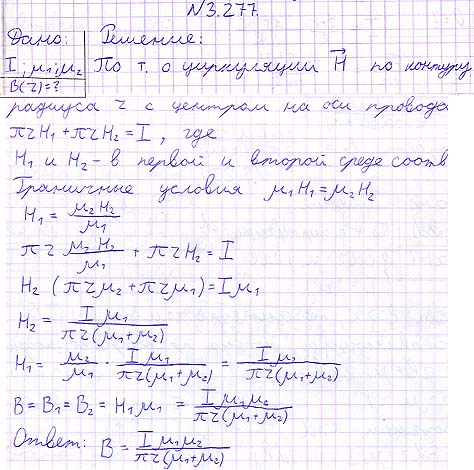 N3.277.
Дано: Решение:
I; μ₁; μ₂ По т. о циркуляции H⃗ по контуру
B(r)=?
радиуса r с центром на оси провода
πrH₁+πrH₂=I, где
H₁ и H₂ - в первой и второй среде соотв
Граничные условия μ₁H₁=μ₂H₂
H₁ = μ₂H₂/μ₁
πr μ₂H₂/μ₁ + πrH₂=I
H₂(πrμ₂+πrμ₁)=Iμ₁
H₂ = Iμ₁/πr(μ₁+μ₂)
H₁ = μ₂/μ₁ · Iμ₁/πr(μ₁+μ₂) = Iμ₂/πr(μ₁+μ₂)
B=B₁=B₂=H₁μ₁ = Iμ₁μ₂/πr(μ₁+μ₂)
Ответ: B = Iμ₁μ₂/πr(μ₁+μ₂)